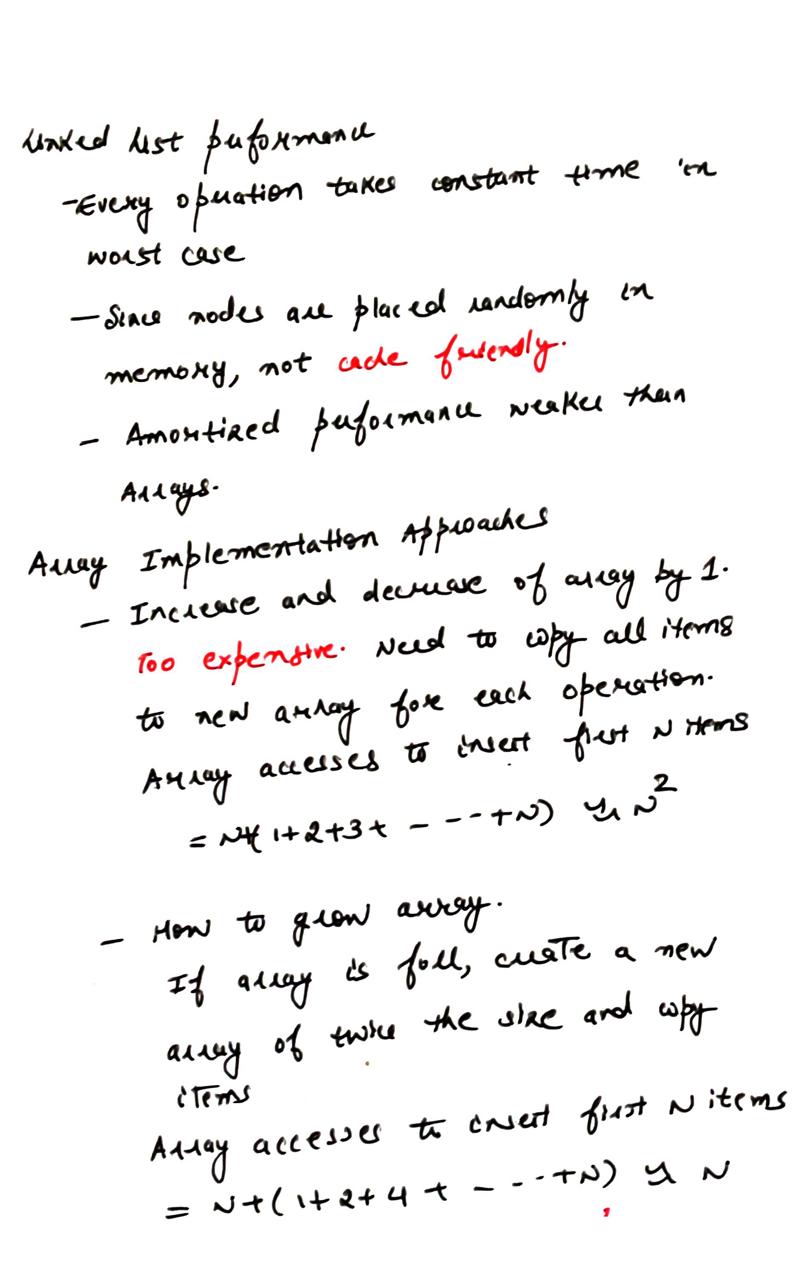 Linked list performance
- Every operation takes constant time in
worst case
- Since nodes are placed randomly in
memory, not cache friendly.
- Amortized performance weaker than
Arrays.
Array Implementation Approaches
- Increase and decrease of array by 1.
Too expensive. Need to copy all items
to new array for each operation.
Array accesses to insert first N items
= N+(1+2+3+ - - - -+N) ≈ N²
- How to grow array.
If array is full, create a new
array of twice the size and copy
items
Array accesses to insert first N items
= N+(1+2+4+ - - - -+N) ≈ N